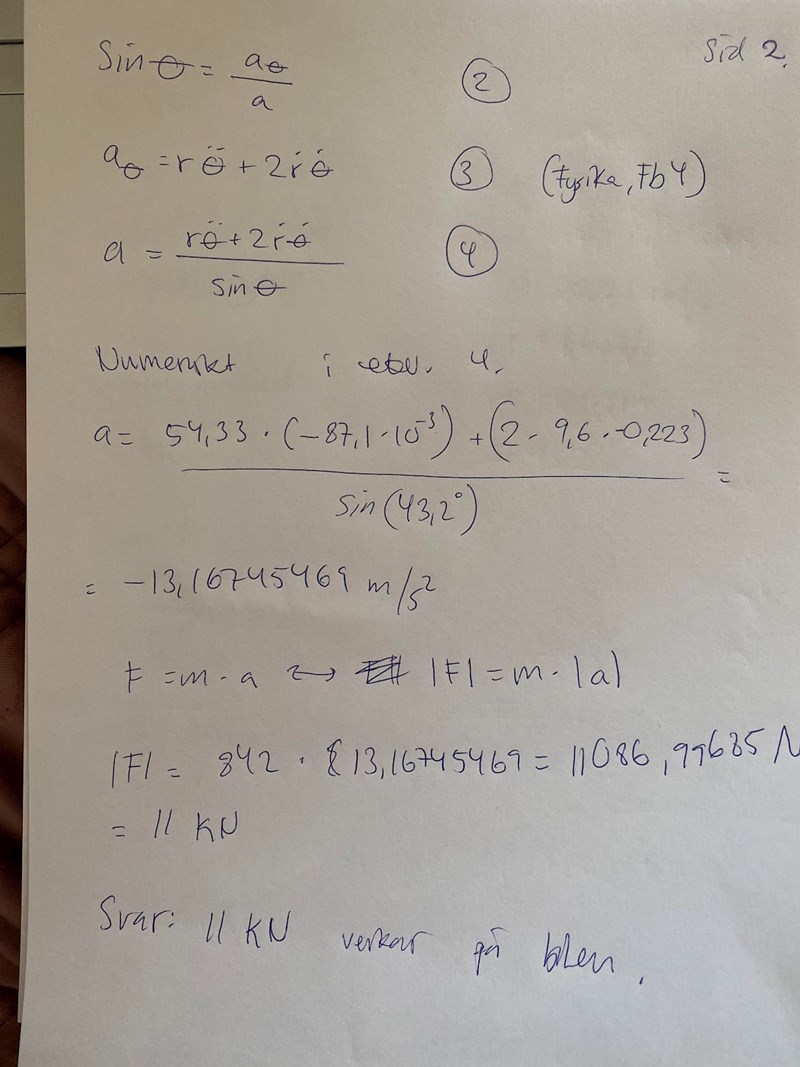 Sid 2.
Sin θ = aθ / a (2)
aθ = rθ̈ + 2ṙθ̇ (3) (Fysika, Fb4)
a = rθ̈ + 2ṙθ̇ / sin θ (4)
Numeriskt i ekv. 4.
a = 54,33 · (-87,1·10⁻³) + (2 · 9,6 · -0,223) / sin(43,2°) =
= -13,16745469 m/s²
F = m · a ↔ |F| = m · |a|
|F| = 842 · 13,16745469 = 11086,99685 N
= 11 kN
Svar: 11 kN verkar på bilen.